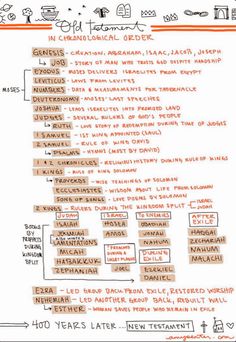 Old Testament
IN CHRONOLOGICAL ORDER
GENESIS - CREATION, ABRAHAM, ISAAC, JACOB, JOSEPH
JOB - STORY OF MAN WHO TRUSTS GOD DESPITE HARDSHIP
EXODUS - MOSES DELIVERS ISRAELITES FROM EGYPT
LEVITICUS - LAWS FROM LEVITES
MOSES
NUMBERS - DATA & MEASUREMENTS FOR TABERNACLE
DEUTERONOMY - MOSES' LAST SPEECHES
JOSHUA - LEADS ISRAELITES INTO PROMISED LAND
JUDGES - SEVERAL RULERS OF GOD'S PEOPLE
RUTH - LOVE STORY OF REDEMPTION DURING TIME OF JUDGES
1 SAMUEL - 1ST KING APPOINTED (SAUL)
2 SAMUEL - RULE OF KING DAVID
PSALMS - HYMNS (MOST BY DAVID)
1 & 2 CHRONICLES - RELIGIOUS HISTORY DURING RULE OF KINGS
1 KINGS - RULE OF KING SOLOMON
PROVERBS - WISE TEACHINGS OF SOLOMON
ECCLESIASTES - WISDOM ABOUT LIFE FROM SOLOMON
SONG OF SONGS - LOVE POEMS BY SOLOMON
2 KINGS - RULERS DURING THE KINGDOM SPLIT
BOOKS BY PROPHETS DURING KINGDOM SPLIT
JUDAH
ISAIAH
JEREMIAH
LAMENTATIONS
MICAH
HABAKKUK
ZEPHANIAH
ISRAEL
HOSEA
AMOS
JOEL
TO ENEMIES
OBADIAH
JONAH
NAHUM
DURING EXILE
EZEKIEL
DANIEL
AFTER EXILE
HAGGAI
ZECHARIAH
NAHUM
MALACHI
EZRA - LED GROUP BACK, RESTORED WORSHIP
NEHEMIAH - LED ANOTHER GROUP BACK, REBUILT WALL
ESTHER - WOMAN SAVES PEOPLE WHO REMAIN IN EXILE
400 YEARS LATER... NEW TESTAMENT